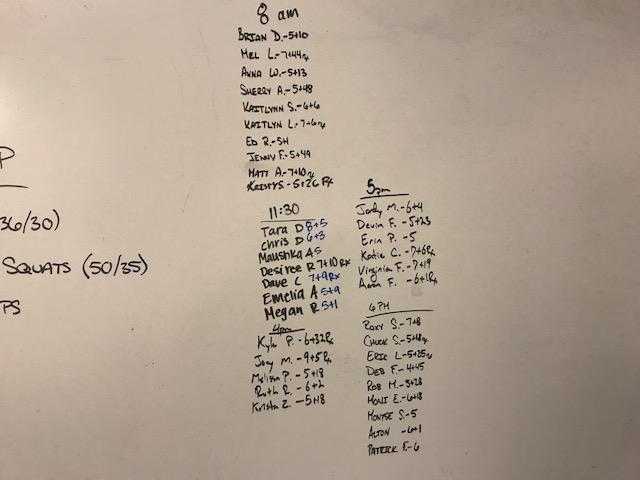 P
36/30)
SQUATS (50/35)
PS
8 am
BRIAN D.-5+10
MEL L.-7+44rx
ANNA W.-5+13
SHERRY A.-5+48
KAITLYNN S.-6+6
KAITLYN L.-7+6rx
ED R.-5+1
JENNY F.-5+49
MATT A.-7+10rx
KRISTY S.-5+26 RX
11:30
Tara D 8+5
Chris D 6+3
Maushka A 5
Desiree R 7+10 RX
Dave C 7+9 RX
Emelia A 5+9
Megan R 5+1
4pm
Kyle P. -6+32Rx
Joey M. -9+5Rx
Melissa P. -5+18
Ruth R. -6+2
Krista Z. -5+18
5pm
Jordy M.-6+4
Devin F. -5+23
Erin P. -5
Katie C. -7+6Rx
Virginia F.-7+19
Aaron F. -6+1Rx
6 PM
ROXY S.-7+8
CHUCK S.-5+48rx
ERIC L-5+25rx
DEB F.-4+45
ROB M.-5+28
MONI E.-6+18
MONTSE S.-5
ALTON -6+1
PATRICK F.-6